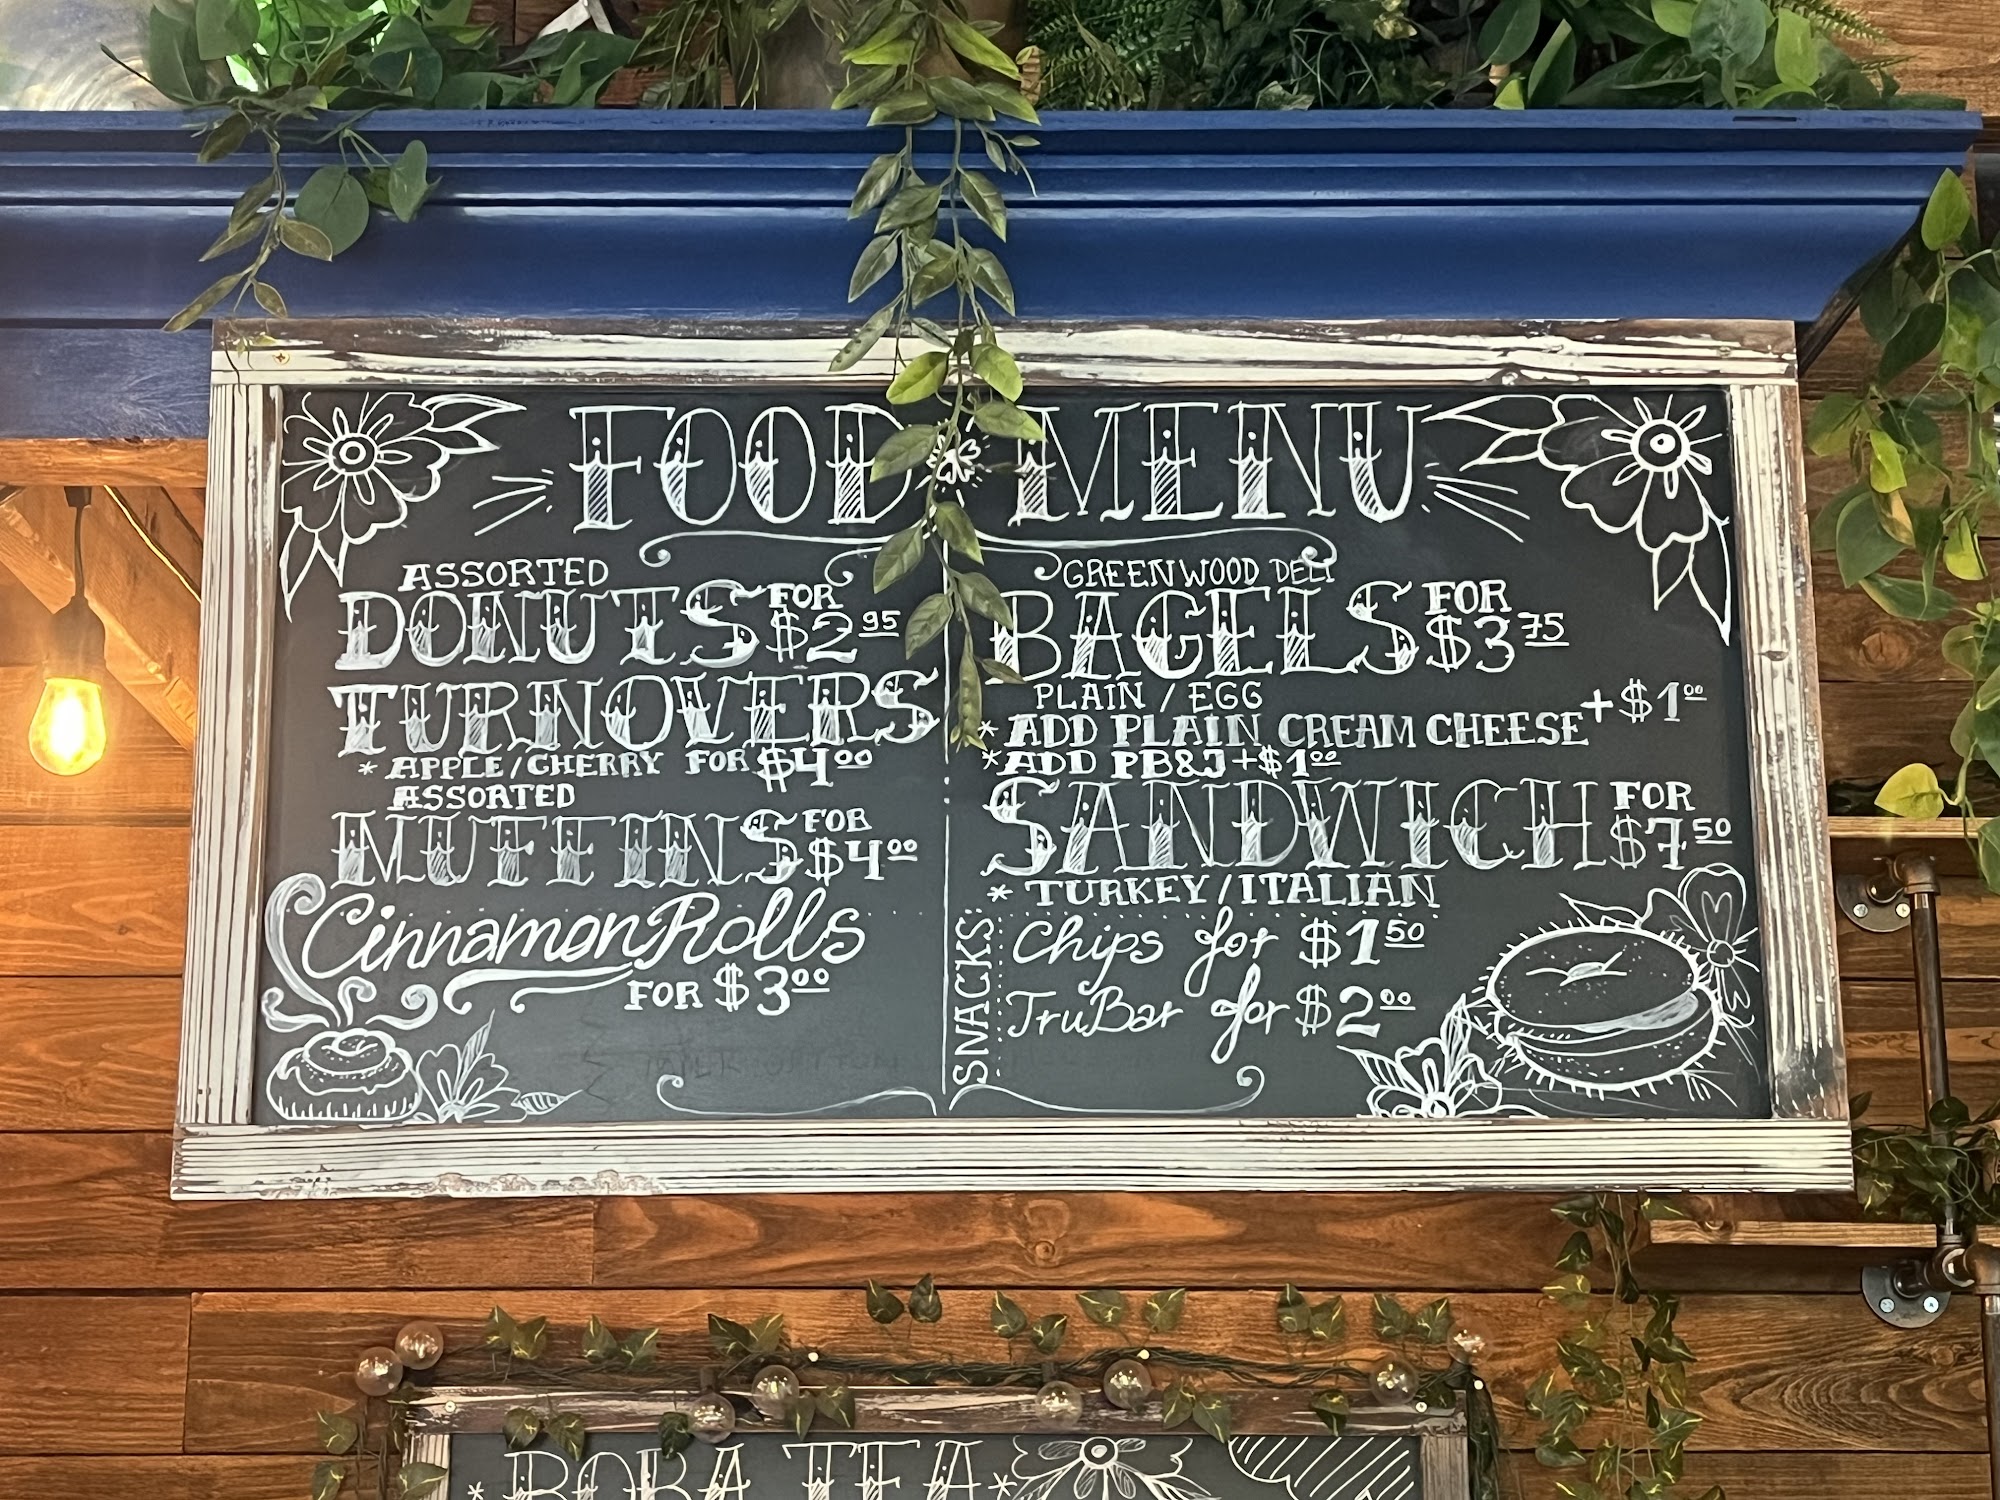 FOOD MENU
ASSORTED
DONUTS FOR $2.95
TURNOVERS
* APPLE/CHERRY FOR $4.00
ASSORTED
MUFFINS FOR $4.00
Cinnamon Rolls
FOR $3.00
GREENWOOD DELI
BAGELS FOR $3.75
PLAIN / EGG
* ADD PLAIN CREAM CHEESE +$1.00
* ADD PB&J +$1.00
SANDWICH FOR $7.50
* TURKEY/ITALIAN
SNACKS:
Chips for $1.50
TruBar for $2.00
* BOBA TEA *